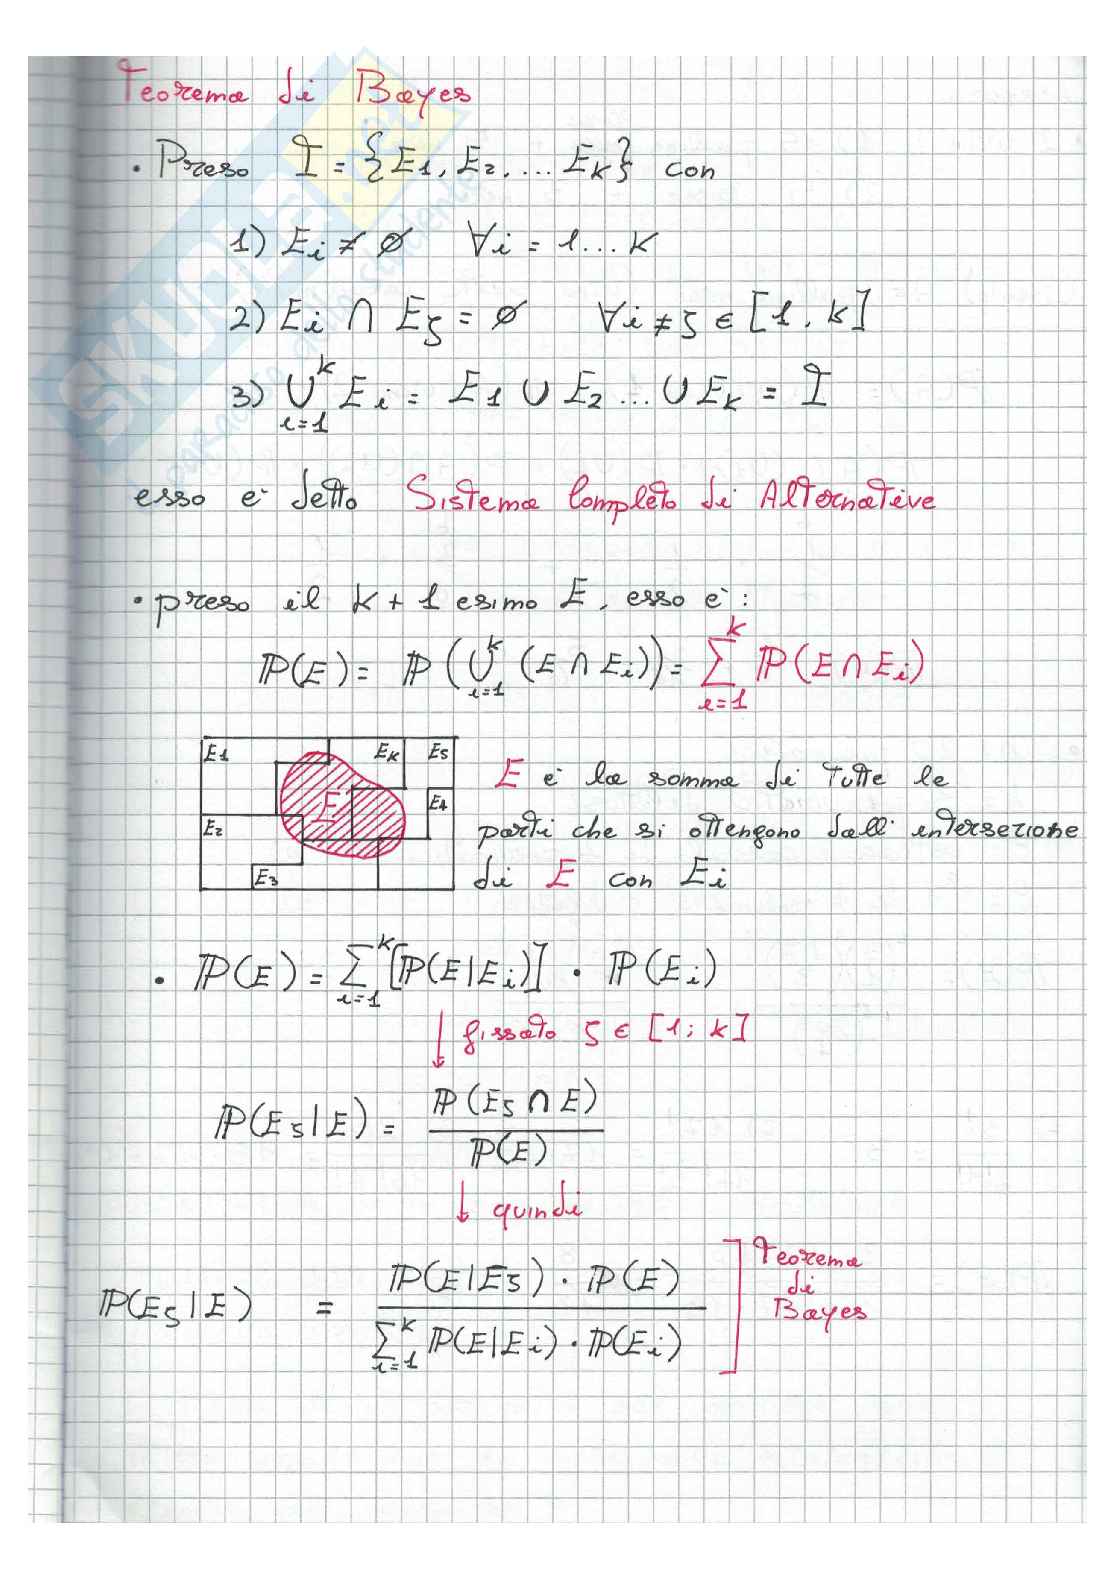 Teorema di Bayes
• Preso I = {E1, E2, ... Ek} con
1) Ei ≠ ∅ ∀i = 1...k
2) Ei ∩ Ej = ∅ ∀i≠j ∈ [1, k]
3) ⋃_{i=1}^{k} Ei = E1 ∪ E2 ... ∪ Ek = I
esso è detto Sistema Completo di Alternative
• preso il k+1 esimo E, esso è:
ℙ(E) = ℙ(⋃_{i=1}^{k} (E ∩ Ei)) = ∑_{i=1}^{k} ℙ(E ∩ Ei)
E1 Ek E5
E E4
E2
E3
E è la somma di tutte le
parti che si ottengono dall'intersezione
di E con Ei
• ℙ(E) = ∑_{i=1}^{k} [ℙ(E|Ei)] · ℙ(Ei)
↓ fissato j ∈ [1; k]
ℙ(Ej|E) = ℙ(Ej ∩ E) / ℙ(E)
↓ quindi
ℙ(Ej|E) = ℙ(E|Ej) · ℙ(E) / ∑_{i=1}^{k} ℙ(E|Ei) · ℙ(Ei)
Teorema
di
Bayes
SKUOLA.net